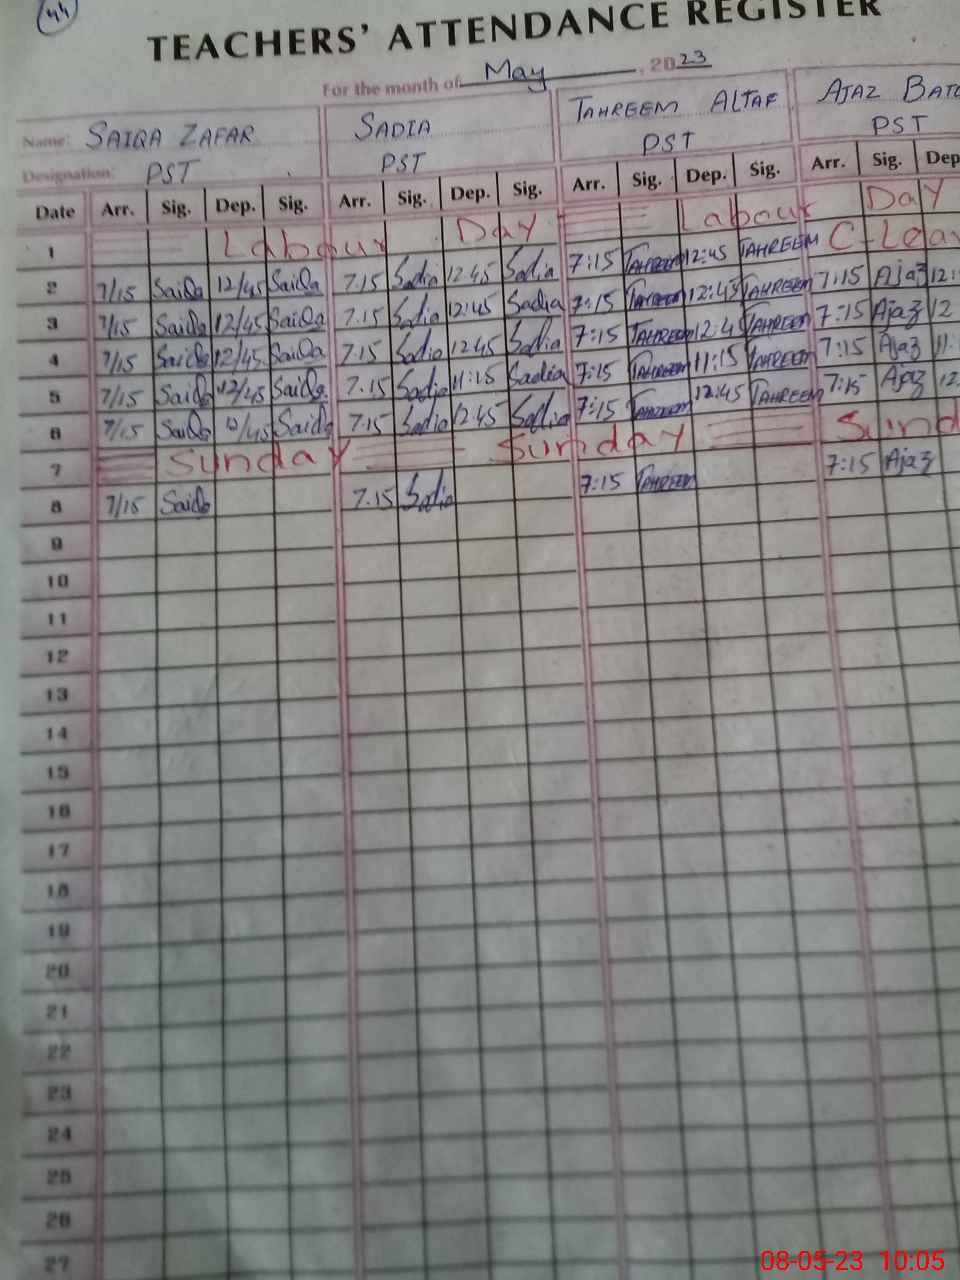 44
TEACHERS' ATTENDANCE REGISTER
For the month of May, 2023
Name: SAIQA ZAFAR SADIA TAHREEM ALTAF AJAZ
Designation: PST PST PST PST
Date Arr. Sig. Dep. Sig. Arr. Sig. Dep. Sig. Arr. Sig. Dep. Sig. Arr. Sig. Dep
1 Labour Day Labour Day
2 7/15 Saiqa 12/45 Saiqa 7.15 Sadia 12.45 Sadia 7:15 TAHREEM 12:45 TAHREEM C-Leav
3 7/15 Saiqa 12/45 Saiqa 7.15 Sadia 12:45 Sadia 7:15 TAHREEM 12:45 TAHREEM 7:15 Ajaz 12:
4 7/15 Saiqa 12/45 Saiqa 7.15 Sadia 12.45 Sadia 7:15 TAHREEM 12:4 TAHREEM 7:15 Ajaz 12
5 7/15 Saiqa 12/45 Saiqa 7.15 Sadia 11:15 Sadia 7:15 TAHREEM 11:15 TAHREEM 7:15 Ajaz 11:
6 7/15 Saiqa /45 Saiqa 7.15 Sadia 12.45 Sadia 7:15 TAHREEM 12:45 TAHREEM 7:15 Ajaz 12.
7 Sunday Sunday Sund
8 7/15 Saiqa 7.15 Sadia 7:15 TAHREEM 7:15 Ajaz
9
10
11
12
13
14
15
16
17
18
19
20
21
22
23
24
25
26
27
08-05-23 10:05